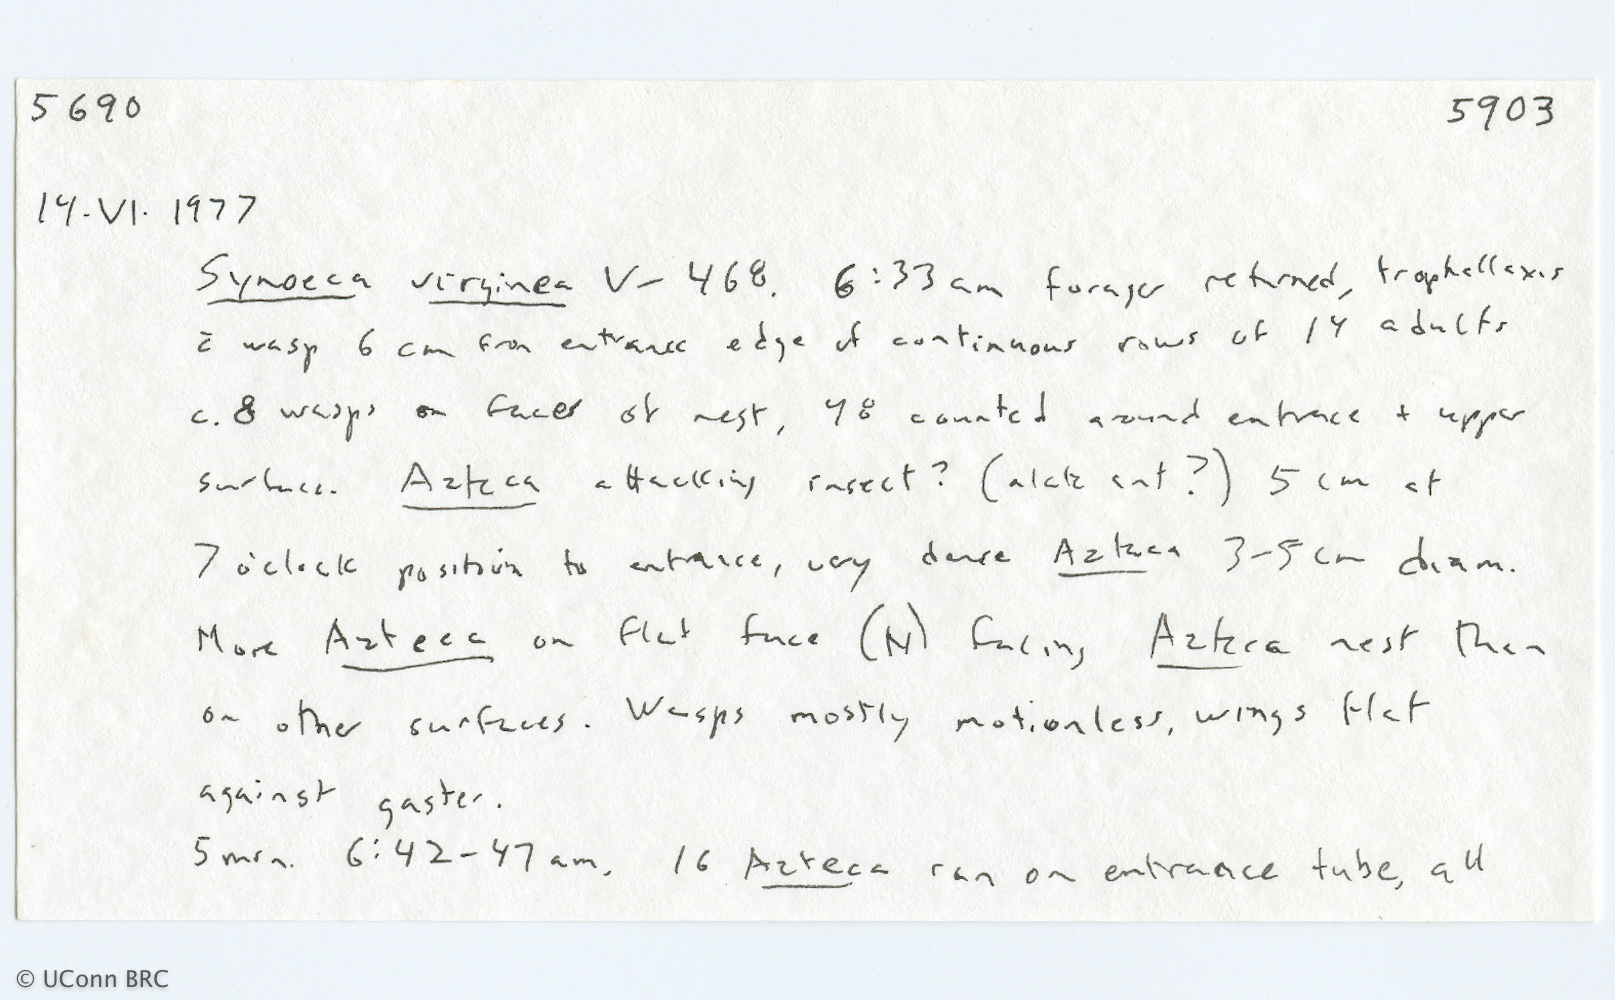 5690 5903
14-VI. 1977
Synoeca virginea V-468. 6:33 am forager returned, trophallaxis
c̄ wasp 6 cm from entrance edge of continuous rows of 14 adults
c. 8 wasps on faces of nest, 48 counted around entrance + upper
surface. Azteca attacking insect? (alate ant?) 5 cm at
7 o'clock position to entrance, very dense Azteca 3-5 cm diam.
More Azteca on flat face (N) facing Azteca nest than
on other surfaces. Wasps mostly motionless, wings flat
against gaster.
5 min. 6:42-47 am. 16 Azteca ran on entrance tube, all
© UConn BRC